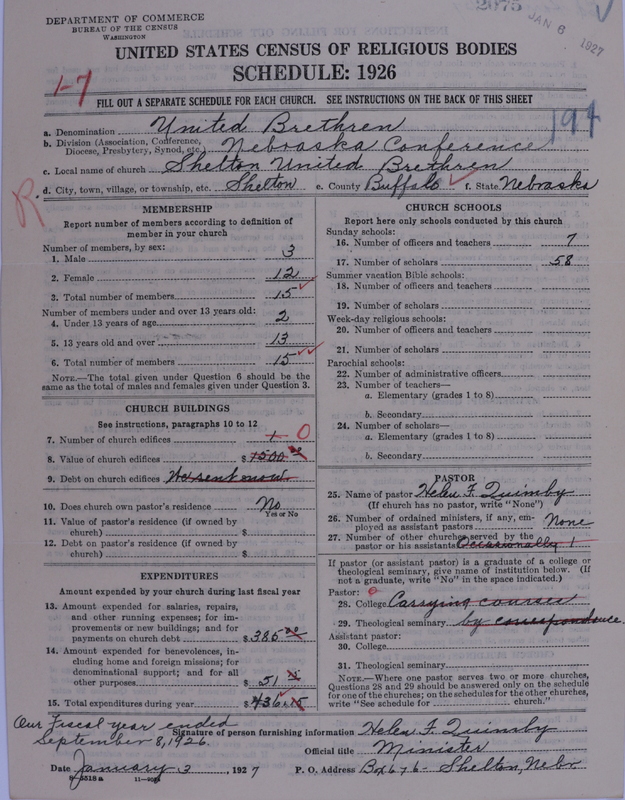 DEPARTMENT OF COMMERCE
BUREAU OF THE CENSUS
WASHINGTON
2075
JAN 6 1927
UNITED STATES CENSUS OF RELIGIOUS BODIES
SCHEDULE: 1926
1-7
FILL OUT A SEPARATE SCHEDULE FOR EACH CHURCH. SEE INSTRUCTIONS ON THE BACK OF THIS SHEET
194
a. Denomination United Brethren
b. Division (Association, Conference, Diocese, Presbytery, Synod, etc.) Nebraska Conference
c. Local name of church Shelton United Brethren
R. d. City, town, village, or township, etc. Shelton e. County Buffalo f. State Nebraska
MEMBERSHIP
Report number of members according to definition of
member in your church
Number of members, by sex:
1. Male 3
2. Female 12
3. Total number of members 15
Number of members under and over 13 years old:
4. Under 13 years of age 2
5. 13 years old and over 13
6. Total number of members 15
NOTE.—The total given under Question 6 should be the
same as the total of males and females given under Question 3.
CHURCH BUILDINGS
See instructions, paragraphs 10 to 12
7. Number of church edifices 1 0
8. Value of church edifices $ 1500
9. Debt on church edifices
10. Does church own pastor's residence No
Yes or No
11. Value of pastor's residence (if owned by
church) $
12. Debt on pastor's residence (if owned by
church) $
EXPENDITURES
Amount expended by your church during last fiscal year
13. Amount expended for salaries, repairs,
and other running expenses; for im-
provements or new buildings; and for
payments on church debt $ 385
14. Amount expended for benevolences, in-
cluding home and foreign missions; for
denominational support; and for all
other purposes $ 51
15. Total expenditures during year $ 436
CHURCH SCHOOLS
Report here only schools conducted by this church
Sunday schools:
16. Number of officers and teachers 7
17. Number of scholars 58
Summer vacation Bible schools:
18. Number of officers and teachers
19. Number of scholars
Week-day religious schools:
20. Number of officers and teachers
21. Number of scholars
Parochial schools:
22. Number of administrative officers
23. Number of teachers—
a. Elementary (grades 1 to 8)
b. Secondary
24. Number of scholars—
a. Elementary (grades 1 to 8)
b. Secondary
PASTOR
25. Name of pastor Helen F. Quimby
(If church has no pastor, write "None")
26. Number of ordained ministers, if any, em-
ployed as assistant pastors None
27. Number of other churches served by the
pastor or his assistants Occasionally 1
If pastor (or assistant pastor) is a graduate of a college or
theological seminary, give name of institution below. (If
not a graduate, write "No" in the space indicated.)
Pastor: 0
28. College Carrying course
29. Theological seminary by correspondence.
Assistant pastor:
30. College
31. Theological seminary
NOTE.—Where one pastor serves two or more churches,
Questions 28 and 29 should be answered only on the schedule
for one of the churches; on the schedules for the other churches,
write "See schedule for church."
Our fiscal year ended
September 8, 1926.
Signature of person furnishing information Helen F. Quimby
Official title Minister
Date January 3, 1927 P. O. Address Box 676- Shelton, Nebr